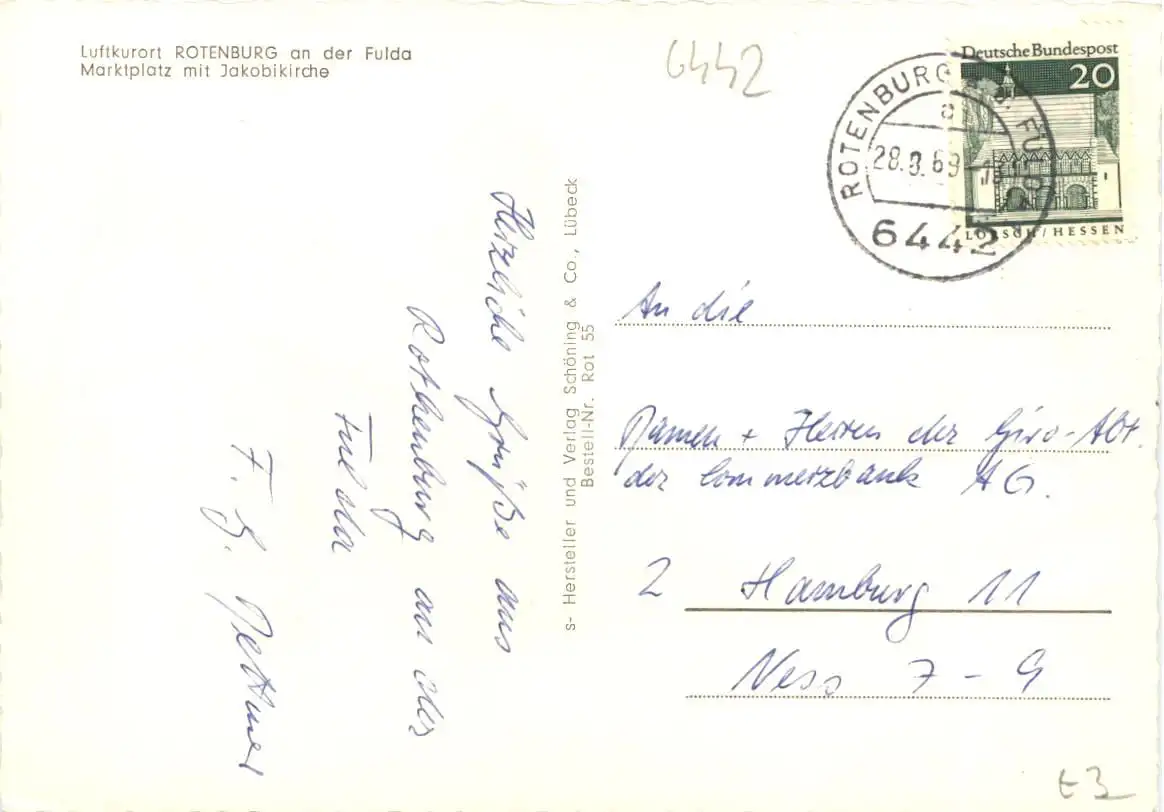 Luftkurort ROTENBURG an der Fulda
Marktplatz mit Jakobikirche
6442
Deutsche Bundespost
20
LORSCH/HESSEN
ROTENBURG A. D. FULDA
a
28.9.69-18
6442
Herzliche Grüße aus
Rothenburg an der
Fulda
F. G. Dettmer
s- Hersteller und Verlag Schöning & Co., Lübeck
Bestell-Nr. Rot 55
An die
Damen + Herren der Giro-Abt.
der Commerzbank AG.
2 Hamburg 11
Ness 7-9
t3